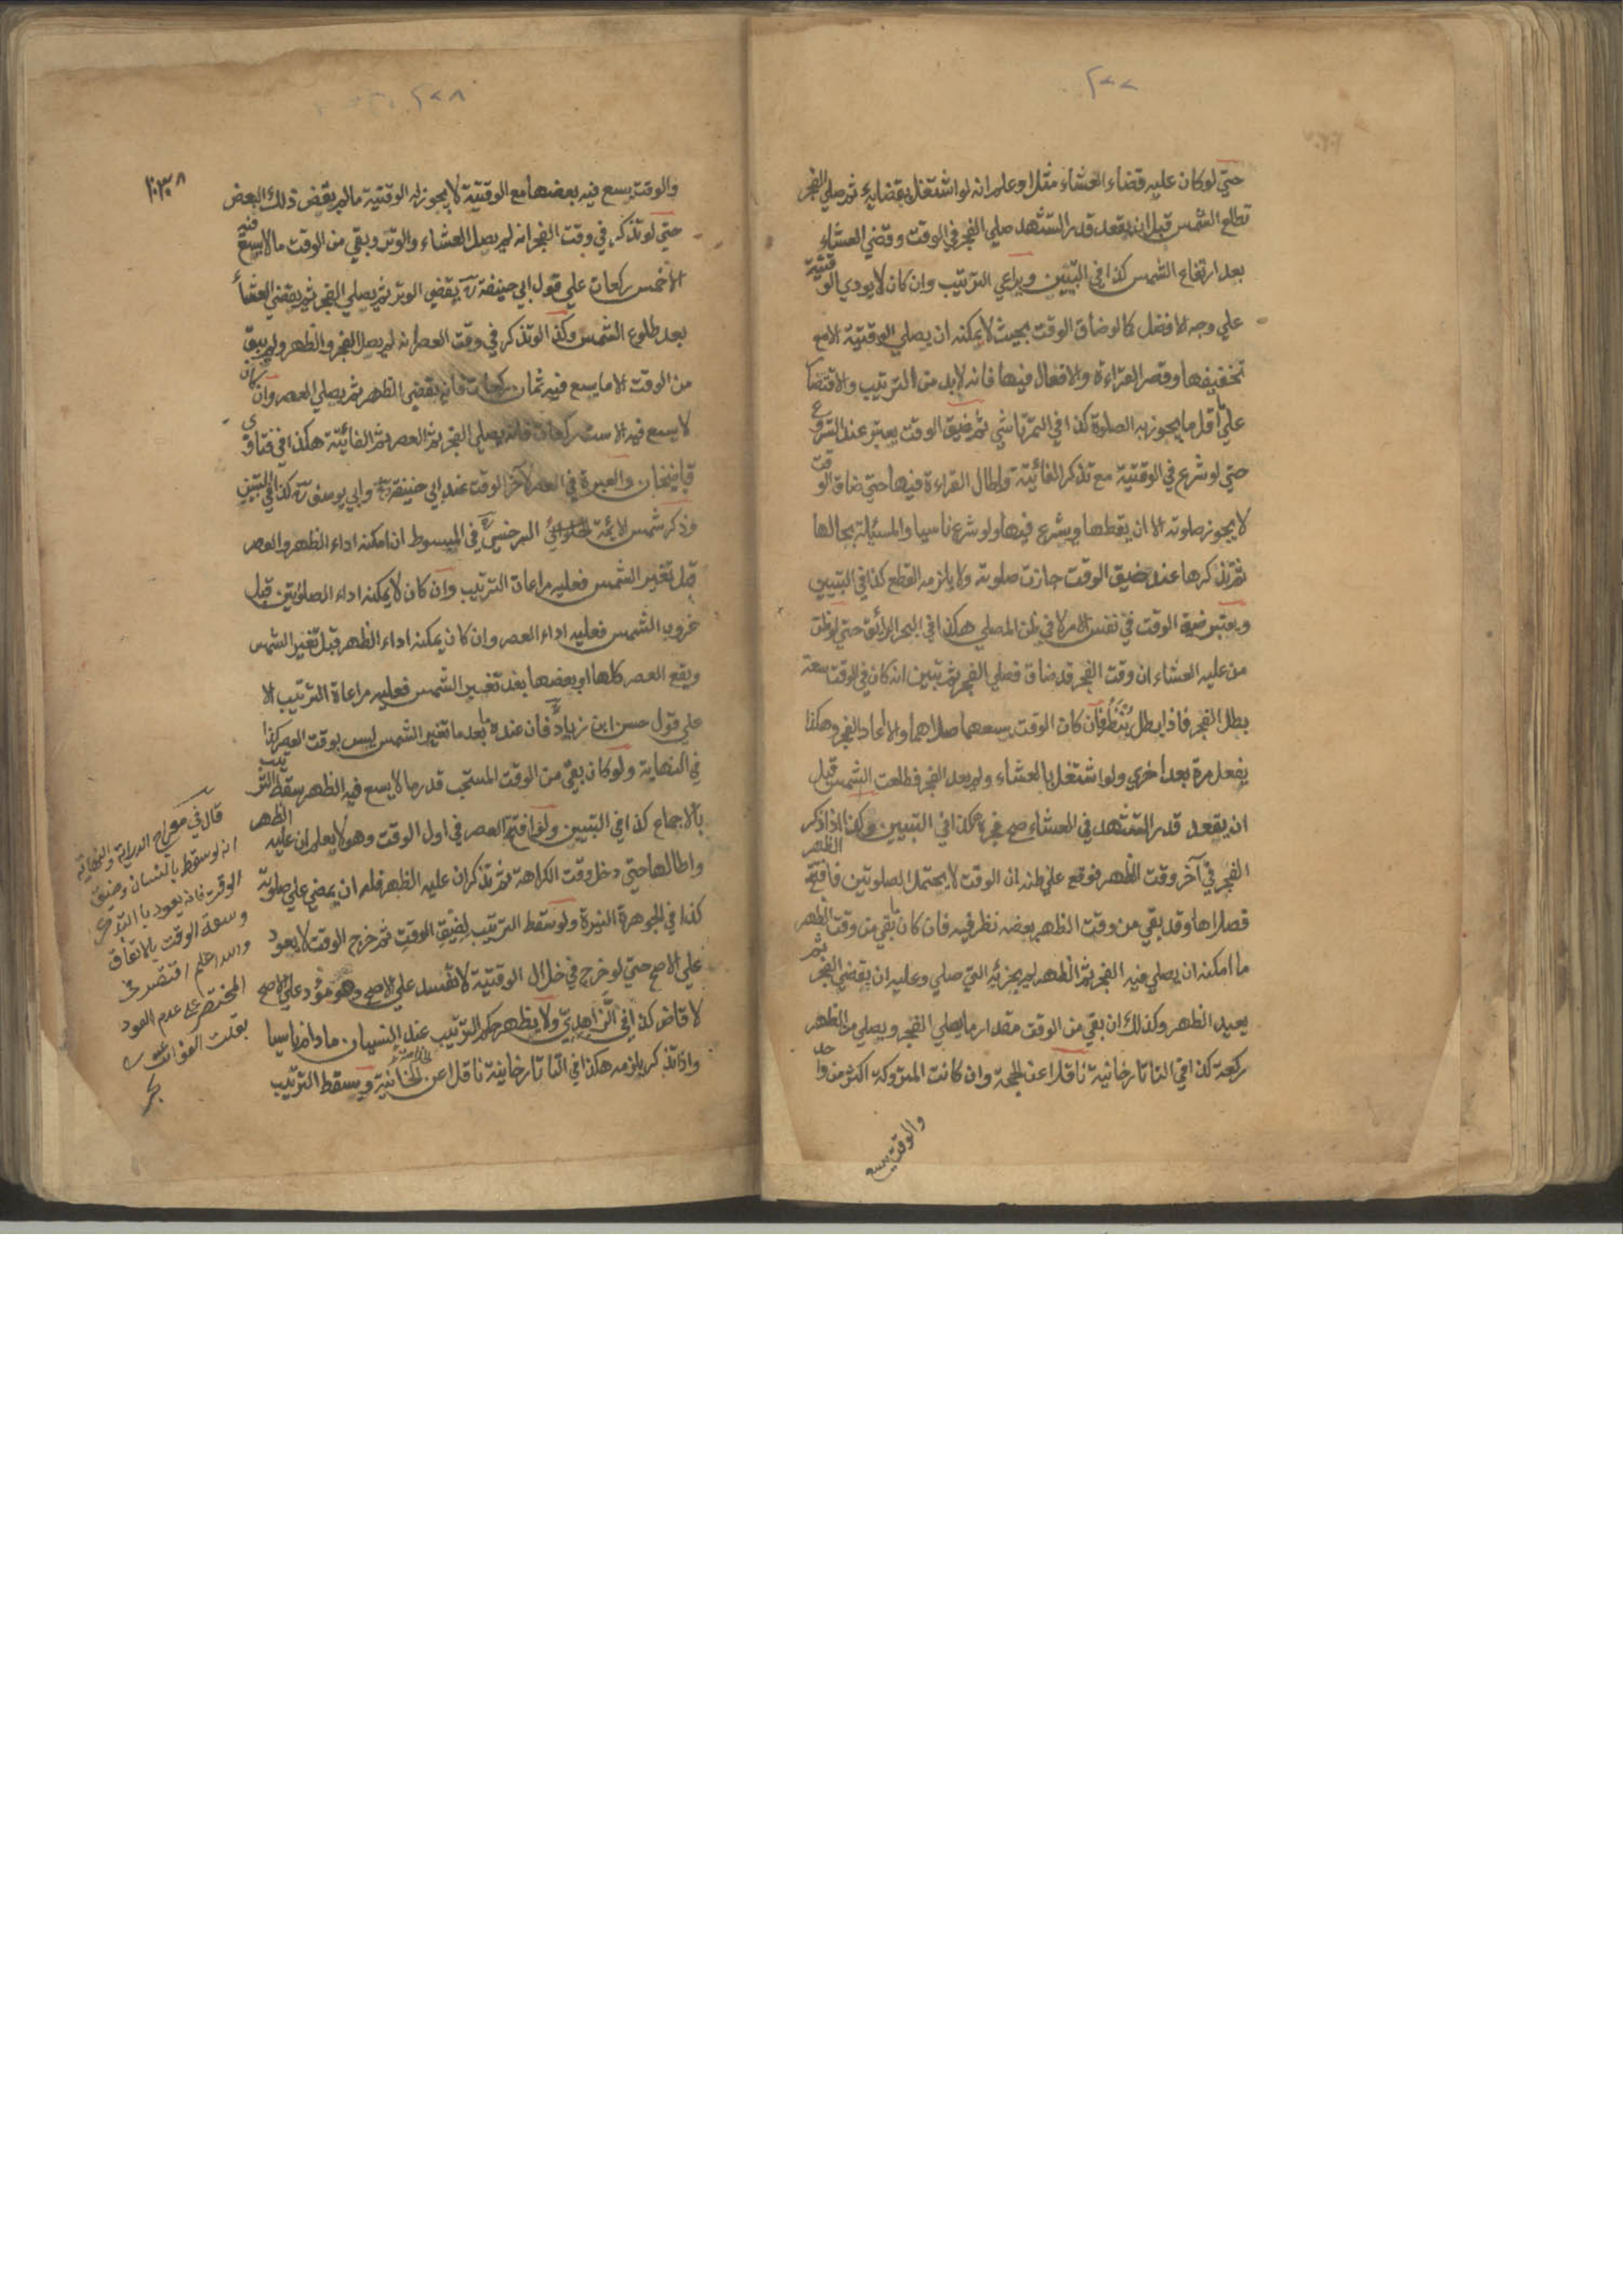 ٢٧٧
حتي لو كان عليه قضاء العشاء مثلا وعلم انه لو اشتغل بقضايه ثم صلي الفجر
تطلع الشمس قبل ان يقعد قدر التشهد صلي الفجر في الوقت وقضي العشاء
بعد ارتفاع الشمس كذا في التبيين ويراعي الترتيب وان كان لا يودي الوقتية
علي وجه الافضل كما لو ضاق الوقت بحيث لا يمكنه ان يصلي الوقتية الا مع
تخفيفها وقصر القراءة والافعال فيها فانه لا بد من الترتيب والاقتصار
علي اقل ما يجوز به الصلوة كذا في التمرتاشي ثم ضيق الوقت يعتبر عند الشروع
حتي لو شرع في الوقتية مع تذكر الفائية واطال القراءة فيها حتي ضاق الوقت
لا يجوز صلوته الا ان يقطعها ويشرع فيها ولو شرع ناسيا والمسئلة بحالها
ثم تذكرها عند ضيق الوقت جازت صلوته ولا يلزمه القطع كذا في التبيين
ويعتبر ضيق الوقت في نفس الامر لا في ظن المصلي هكذا في البحر الرائق حتي لو ظن
من عليه العشاء ان وقت الفجر قد ضاق فصلي الفجر ثم تبين انه كان في الوقت سعة
بطل الفجر فاذا بطل ينظر فان كان الوقت يسعهما صلاهما والا اعاد الفجر وهكذا
يفعل مرة بعد اخري ولو اشتغل بالعشاء ولم يعد الفجر فطلعت الشمس قبل
ان يقعد قدر التشهد في العشاء صح فجره هكذا في التبيين وكذا اذا ذكر
الفجر في آخر وقت الظهر فوقع علي ظنه ان الوقت لا يحتمل الصلوتين فافتتح الظهر
فصلاها وقد بقي من وقت الظهر بعضه نظر فيه فان كان بقي من وقت الظهر
ما امكنه ان يصلي فيه الفجر ثم الظهر لم يجزئه التي صلي وعليه ان يقضي الفجر ثم
يعيد الظهر وكذلك ان بقي من الوقت مقدار ما يصلي الفجر ويصلي من الظهر
ركعة كذا في التاتارخانية ناقلا عن الحجة وان كانت المتروكة اكثر من واحد
والوقت يسع
٢٧٨
والوقت يسع فيه بعضها مع الوقتية لا يجوز له الوقتية ما لم يقض ذلك البعض
حتي لو تذكر في وقت الفجر انه لم يصل العشاء والوتر وبقي من الوقت ما لا يسع فيه
الا خمس ركعات علي قول ابي حنيفة رح يقضي الوتر ثم يصلي الفجر ثم يقضي العشاء
بعد طلوع الشمس وكذا لو تذكر في وقت العصر انه لم يصل الفجر والظهر ولم يبق
من الوقت الا ما يسع فيه ثمان ركعات فانه يقضي الظهر ثم يصلي العصر وان كان
لا يسع فيه الا ست ركعات فانه يصلي الفجر ثم العصر ثم الفائية هكذا في فتاوي
قاضيخان والعبرة في العصر لآخر الوقت عند ابي حنيفة رح وابي يوسف رح كذا في التبيين
وذكر شمس الائمة السرخسي رح في المبسوط ان امكنه اداء الظهر والعصر
قبل تغير الشمس فعليه مراعات الترتيب وان كان لا يمكنه اداء الصلوتين قبل
غروب الشمس فعليه اداء العصر وان كان يمكنه اداء الظهر قبل تغير الشمس
ويقع العصر كلها او بعضها بعد تغير الشمس فعليه مراعاة الترتيب الا
علي قول حسن ابن زياد رح فان عنده بعد ما تغير الشمس ليس بوقت العصر كذا
في النهاية ولو كان بقي من الوقت المستحب قدر ما لا يسع فيه الظهر سقط الترتيب
بالاجماع كذا في التبيين ولو افتتح العصر في اول الوقت وهو لا يعلم ان عليه الظهر
واطالها حتي دخل وقت الكراهة ثم تذكر ان عليه الظهر فله ان يمضي علي صلوته
كذا في الجوهرة النيرة ولو سقط الترتيب لضيق الوقت ثم خرج الوقت لا يعود
علي الاصح حتي لو خرج في خلال الوقتية لا تفسد علي الاصح وهو مؤد علي الاصح
لا قاض كذا في الزاهدي ولا يظهر حكم الترتيب عند النسيان ما دام ناسيا
واذا تذكر يلزمه هكذا في التاتارخانية ناقلا عن الخانية ويسقط الترتيب
قال في معراج الدراية والنهاية
انه لو سقط بالنسيان وضيق
الوقت فانه يعود بالتذكر
وسعة الوقت بالاتفاق
والله اعلم اقتصر في
المختصر علي عدم العود
بقلت الفوائت